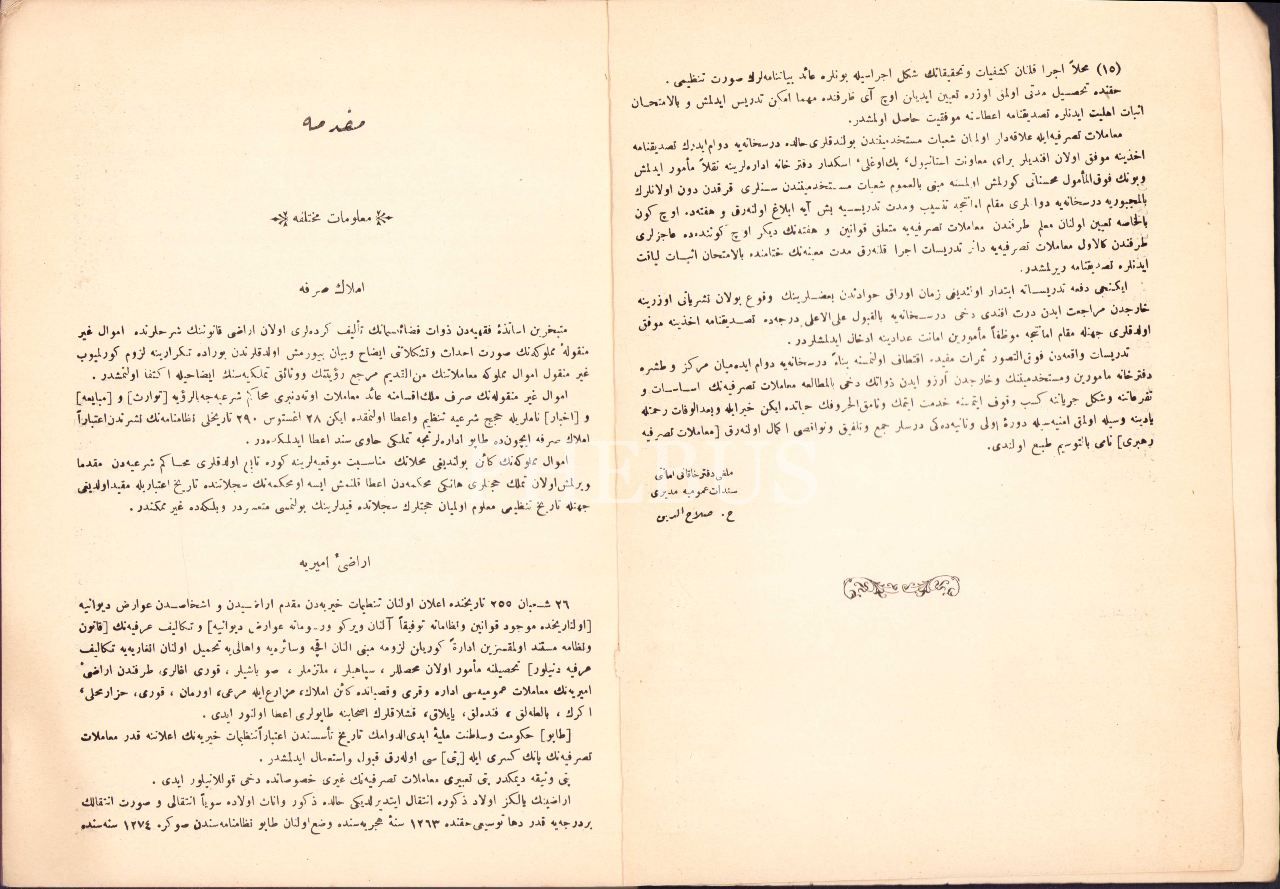 (١٥) محلاً اجرا قلنان كشفيات وتحقيقاتك شكل اجراسيله بونلره عائد بياننامه‌لرك صورت تنظيمى .
حقنده تحصيل مدتى اولمق اوزره تعيين ايديلن اوچ آى ظرفنده مهما امكن تدريس ايدلمش و بالامتحان
اثبات اهليت ايدنلره تصديقنامه اعطاسنه موفقيت حاصل اولمشدر.
معاملات تصرفيه‌ايله علاقه‌دار اولمان شعبات مستخدميفندن بولندقلرى حالده درسخانه‌يه دوام‌ايدرك تصديقنامه
اخذينه موفق اولان افنديلر براى معاونت استانبول، بك‌اوغلى، اسكدار دفترخانه اداره‌لرينه نقلاً مأمور ايدلمش
وبونك فوق‌المأمول محسناتى كورلمش اولمسنه مبنى بالعموم شعبات مستخدميفندن سنلرى قرقدن دون اولانلرك
بالمجبوريه درسخانه‌يه دواملرى مقام امانتجه تنسيب ومدت تدريسيه بش آيه ابلاغ اولنه‌رق و هفته‌ده اوچ كون
بالخاصه تعيين اولنان معلم طرفندن معاملات تصرفيه‌يه متعلق قوانين و هفته‌نك ديكر اوچ كوننده‌ده عاجزلرى
طرفندن كالاول معاملات تصرفيه‌يه دائر تدريسات اجرا قلنه‌رق مدت معينه‌نك ختامنده بالامتحان اثبات لياقت
ايدنلره تصديقنامه ويرلمشدر.
ايكنجى دفعه تدريساته ابتدار اولنديغى زمان اوراق حوادثدن بعضلرينك وقوع بولان نشرياتى اوزرينه
خارجدن مراجعت ايدن درت افندى دخى درسخانه‌يه بالقبول على‌الاعلى درجه‌ده تصديقنامه اخذينه موفق
اولدقلرى جهتله مقام امانتجه موظفاً مأمورين امانت عدادينه ادخال ايدلمشلردر .
تدريسات واقعه‌دن فوق‌التصور ثمرات مفيده اقتطاف اولنمسنه بناءً درسخانه‌يه دوام ايده‌ميان مركز و طشره
دفترخانه مأمورين ومستخدميفنك وخارجدن آرزو ايدن ذواتك دخى بالمطالعه معاملات تصرفيه‌نك اساسات و
تفرعاتنه وشكل جرياننه كسب وقوف ايتمسنه خدمت ايتمك ونامق‌الحروفك حياتده ايكن خيرايله وبعدالوفات رحمتله
يادينه وسيله اولمق امنيه‌سيله دوره‌ٔ اولى وثانيه‌ده‌كى درسلر جمع وتلفيق ونواقصى اكمال اولنه‌رق [معاملات تصرفيه
رهبرى] نامى بالتوسيم طبع اولندى.
ملغى دفتر خاقانى امانتى
سندات عموميه مديرى
ح . صلاح الدين
مقدمه
معلومات مختلفه
املاك صرفه
متبحرين اساتذهٔ فقهيه‌دن ذوات فضائلسماتك تأليف كرده‌لرى اولان اراضى قانوننك شرحلرنده اموال غير
منقولهٔ مملوكه‌نك صورت احداث وتشكلاتى ايضاح وبيان بيورمش اولدقلرندن بوراده تكرارينه لزوم كورلميوب
غير منقول اموال مملوكه معاملاتنك من‌القديم مرجع رؤيتنك ووثائق تملكيه‌سنك ايضاحيله اكتفا اولنمشدر .
اموال غير منقوله‌نك صرف ملك‌اقسامنه عائد معاملات اوته‌دنبرى محاكم شرعيه‌جه‌بالرؤيه [توارث] و [مبايعه]
و [اخبار] ناملريله حجج شرعيه تنظيم واعطا اولنمقده ايكن ٢٨ اغستوس ٢٩٠ تاريخلى نظامنامه‌نك نشرندن‌اعتباراً
املاك صرفه ايچون‌ده طاپو اداره‌لرنجه تملكى حاوى سند اعطا ايدلمكده‌در .
اموال مملوكه‌نك كائن بولنديغى محلاتك مناسبت موقعيه‌لرينه كوره تابع اولدقلرى محاكم شرعيه‌دن مقدما
ويرلمش‌اولان تملك حجتلرى هانكى محكمه‌دن اعطا قلنمش ايسه اومحكمه‌نك سجلاتنده تاريخ اعتباريله مقيداولديغى
جهتله تاريخ تنظيمى معلوم اولميان حجتلرك سجلاتده قيدلرينك بولنمسى متعسردر وبلكه‌ده غير ممكندر .
اراضىٔ اميريه
٢٦ شعبان ٢٥٥ تاريخنده اعلان اولنان تنظيمات خيريه‌دن مقدم اراضيدن و اشخاصدن عوارض ديوانيه
[اوتاريخده موجود قوانين ونظاماته توفيقاً آلنان ويركو ورسوماته عوارض ديوانيه] و تكاليف عرفيه‌نك [قانون
ونظامه مستند اولمقسزين ادارةً كوريلن لزومه مبنى النان اقچه وسائره‌يه واهالى‌يه تحميل اولنان انغاريه‌يه تكاليف
عرفيه دنيلور] تحصيلنه مأمور اولان محصللر ، سپاهيلر ، ملتزملر ، صو باشيلر ، قورى اغالرى طرفندن اراضىٔ
اميريه‌نك معاملات عموميه‌سى اداره وقرى وقصباتده كائن املاك، مزارع‌ايله مرعى، اورمان ، قورى،
اكرك ، بالطه‌لق ، فنده‌لق، يايلاق، قشلاقلرك اصحابنه طاپولرى اعطا اولنور ايدى .
[طاپو] حكومت وسلطنت مليهٔ ابدى‌الدوامك تاريخ تأسسندن اعتباراًتنظيمات خيريه‌نك اعلاننه قدر معاملات
تصرفيه‌نك يانك كسرى ايله [بتى] سى اوله‌رق قبول واستعمال ايدلمشدر .
بتى وثيقه ديمكدر بتى تعبيرى معاملات تصرفيه‌نك غيرى خصوصاتده دخى قوللانيلور ايدى .
اراضينك يالكز اولاد ذكوره انتقال ايتديرلديكى حالده ذكور واناث اولاده سوياً انتقالى و صورت انتقالك
بردرجه‌يه قدر دها توسيعى حقنده ١٢٦٣ سنهٔ هجريه‌سنده وضع‌اولنان طاپو نظامنامه‌سندن صوكره ١٢٧٤ سنه‌سنده